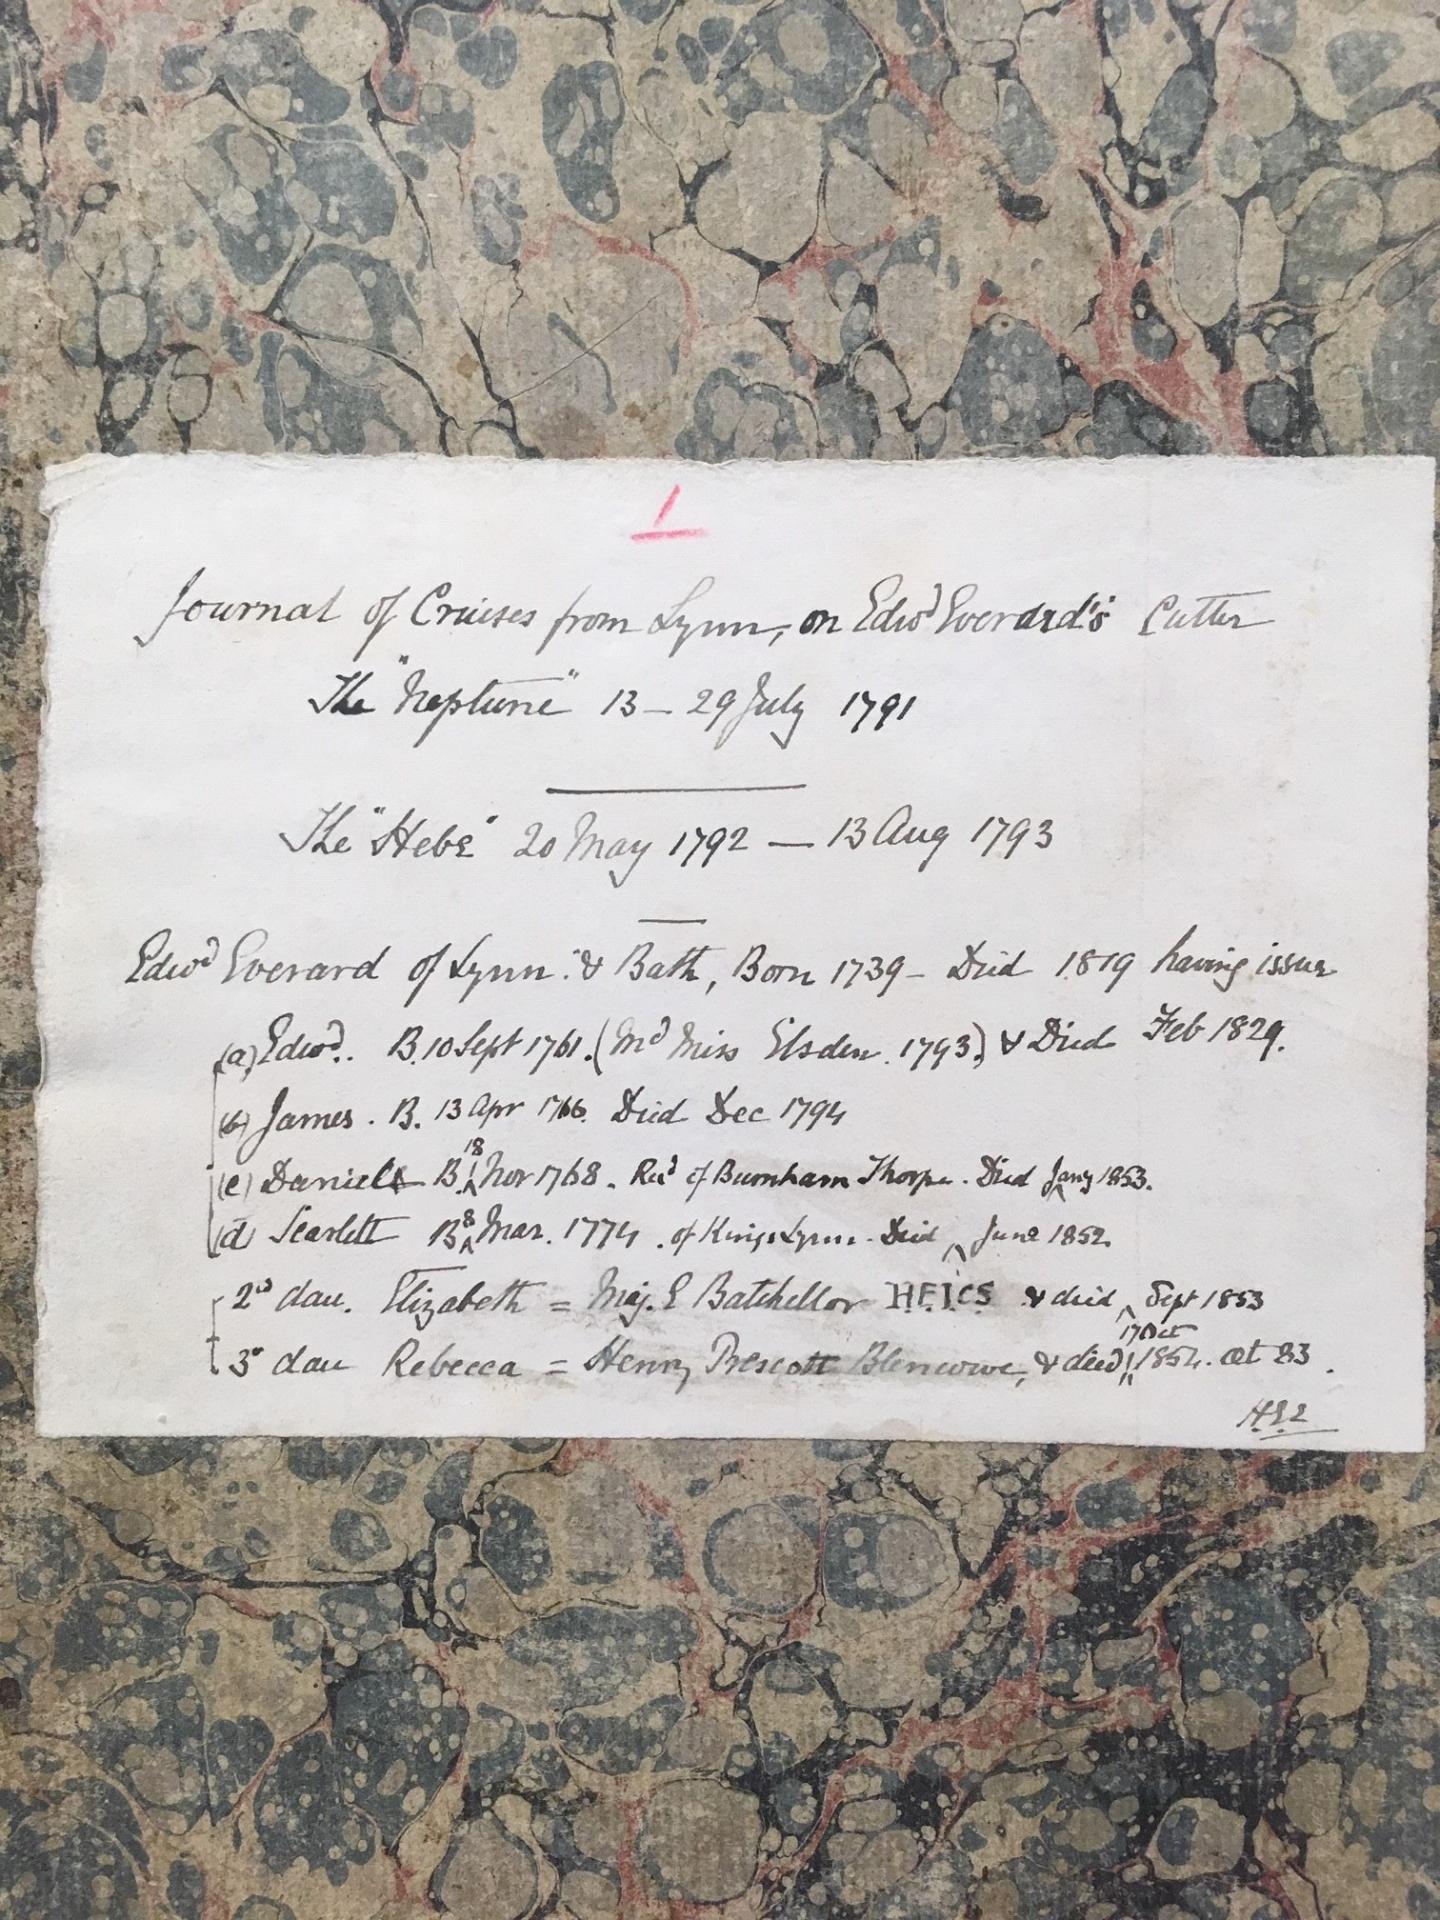 1
Journal of Cruises from Lynn, on Edwd Everard's Cutter
The "Neptune" 13 – 29 July 1791
The "Hebe" 20 May 1792 — 13 Aug 1793
Edwd Everard of Lynn & Bath, Born 1739 – Died 1819 having issue
(a) Edwd. B. 10 Sept 1761. (Md Miss Elsden. 1793) & Died Feb 1829.
(b) James. B. 13 Apr 1766. Died Dec 1794
(c) Daniel B. 18 Nov 1768. Rr of Burnham Thorpe. Died Jany 1853.
(d) Scarlett B 8 Mar. 1774. of Kings Lynn. Died June 1852.
2d dau. Elizabeth = Maj. E Batchellor H.E.I.C.S & died Sept 1853
3d dau Rebecca = Henry Prescott Blencowe, & died 17 Oct 1854. æt 83.